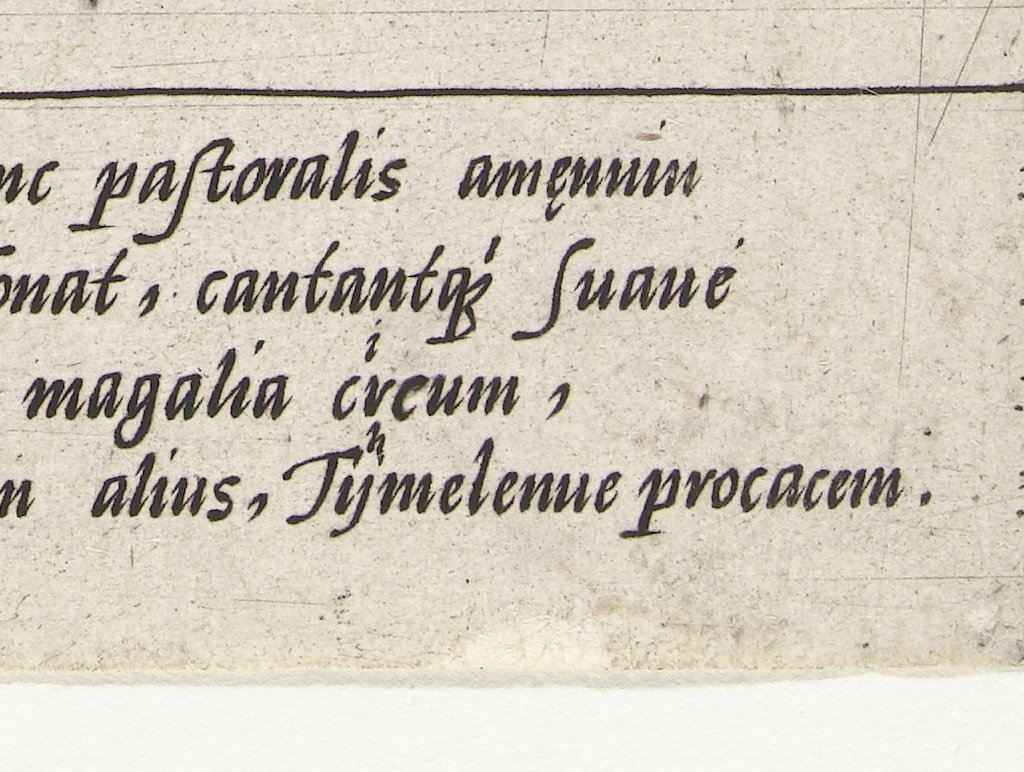 pastoralis amęnum
cantantq́ʒ suaue
magalia circum,
alius, Thymelenue procacem.